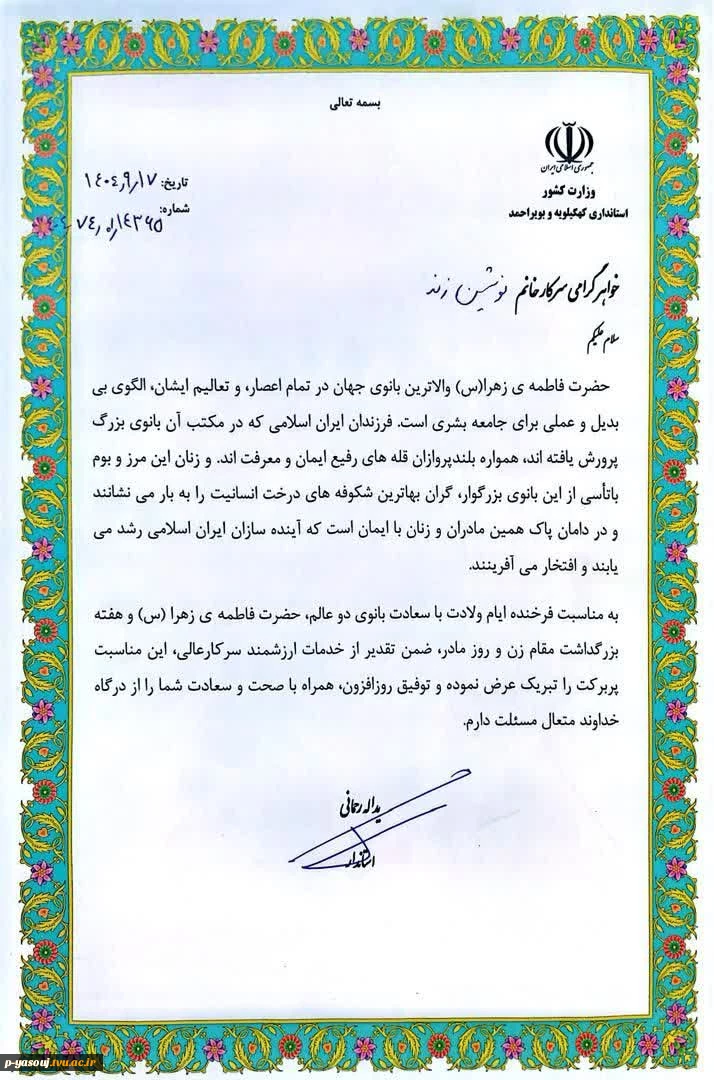 بسمه تعالی
جمهوری اسلامی ایران
وزارت کشور
استانداری کهگیلویه و بویراحمد
تاریخ: ۱۴۰۴٫۹٫۱۷
شماره:
خواهر گرامی سرکار خانم نوشین زند
سلام علیکم
حضرت فاطمه ی زهرا(س) والاترین بانوی جهان در تمام اعصار، و تعالیم ایشان، الگوی بی
بدیل و عملی برای جامعه بشری است. فرزندان ایران اسلامی که در مکتب آن بانوی بزرگ
پرورش یافته اند، همواره بلندپروازان قله های رفیع ایمان و معرفت اند. و زنان این مرز و بوم
باتأسی از این بانوی بزرگوار، گران بهاترین شکوفه های درخت انسانیت را به بار می نشانند
و در دامان پاک همین مادران و زنان با ایمان است که آینده سازان ایران اسلامی رشد می
یابند و افتخار می آفرینند.
به مناسبت فرخنده ایام ولادت با سعادت بانوی دو عالم، حضرت فاطمه ی زهرا (س) و هفته
بزرگداشت مقام زن و روز مادر، ضمن تقدیر از خدمات ارزشمند سرکارعالی، این مناسبت
پربرکت را تبریک عرض نموده و توفیق روزافزون، همراه با صحت و سعادت شما را از درگاه
خداوند متعال مسئلت دارم.
یداله رحمانی
استاندار
p-yasouj.tvu.ac.ir